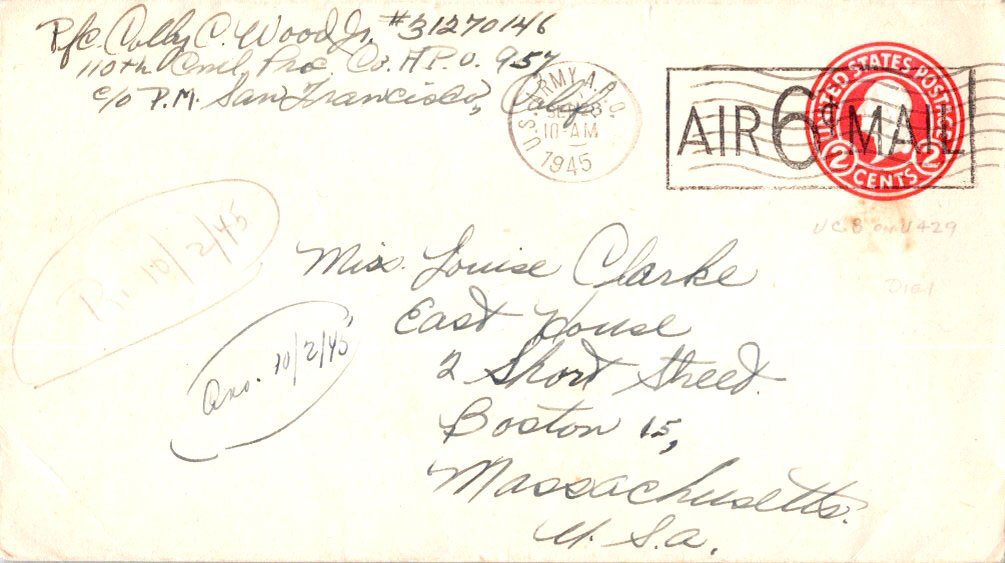 Pfc. Colby C. Wood Jr. #31270146
110th Cml. Proc. Co. A.P.O. 957
c/o P.M. San Francisco, Calif
U.S. ARMY A.P.O.
10-AM
1945
AIR 6¢ MAIL
UNITED STATES POSTAGE
2 CENTS 2
UC 8 on U429
R. 10/2/45
Miss. Louise Clarke
East House
Ans. 10/2/45
2 Short Street.
Boston 15,
Massachusetts.
U.S.A.